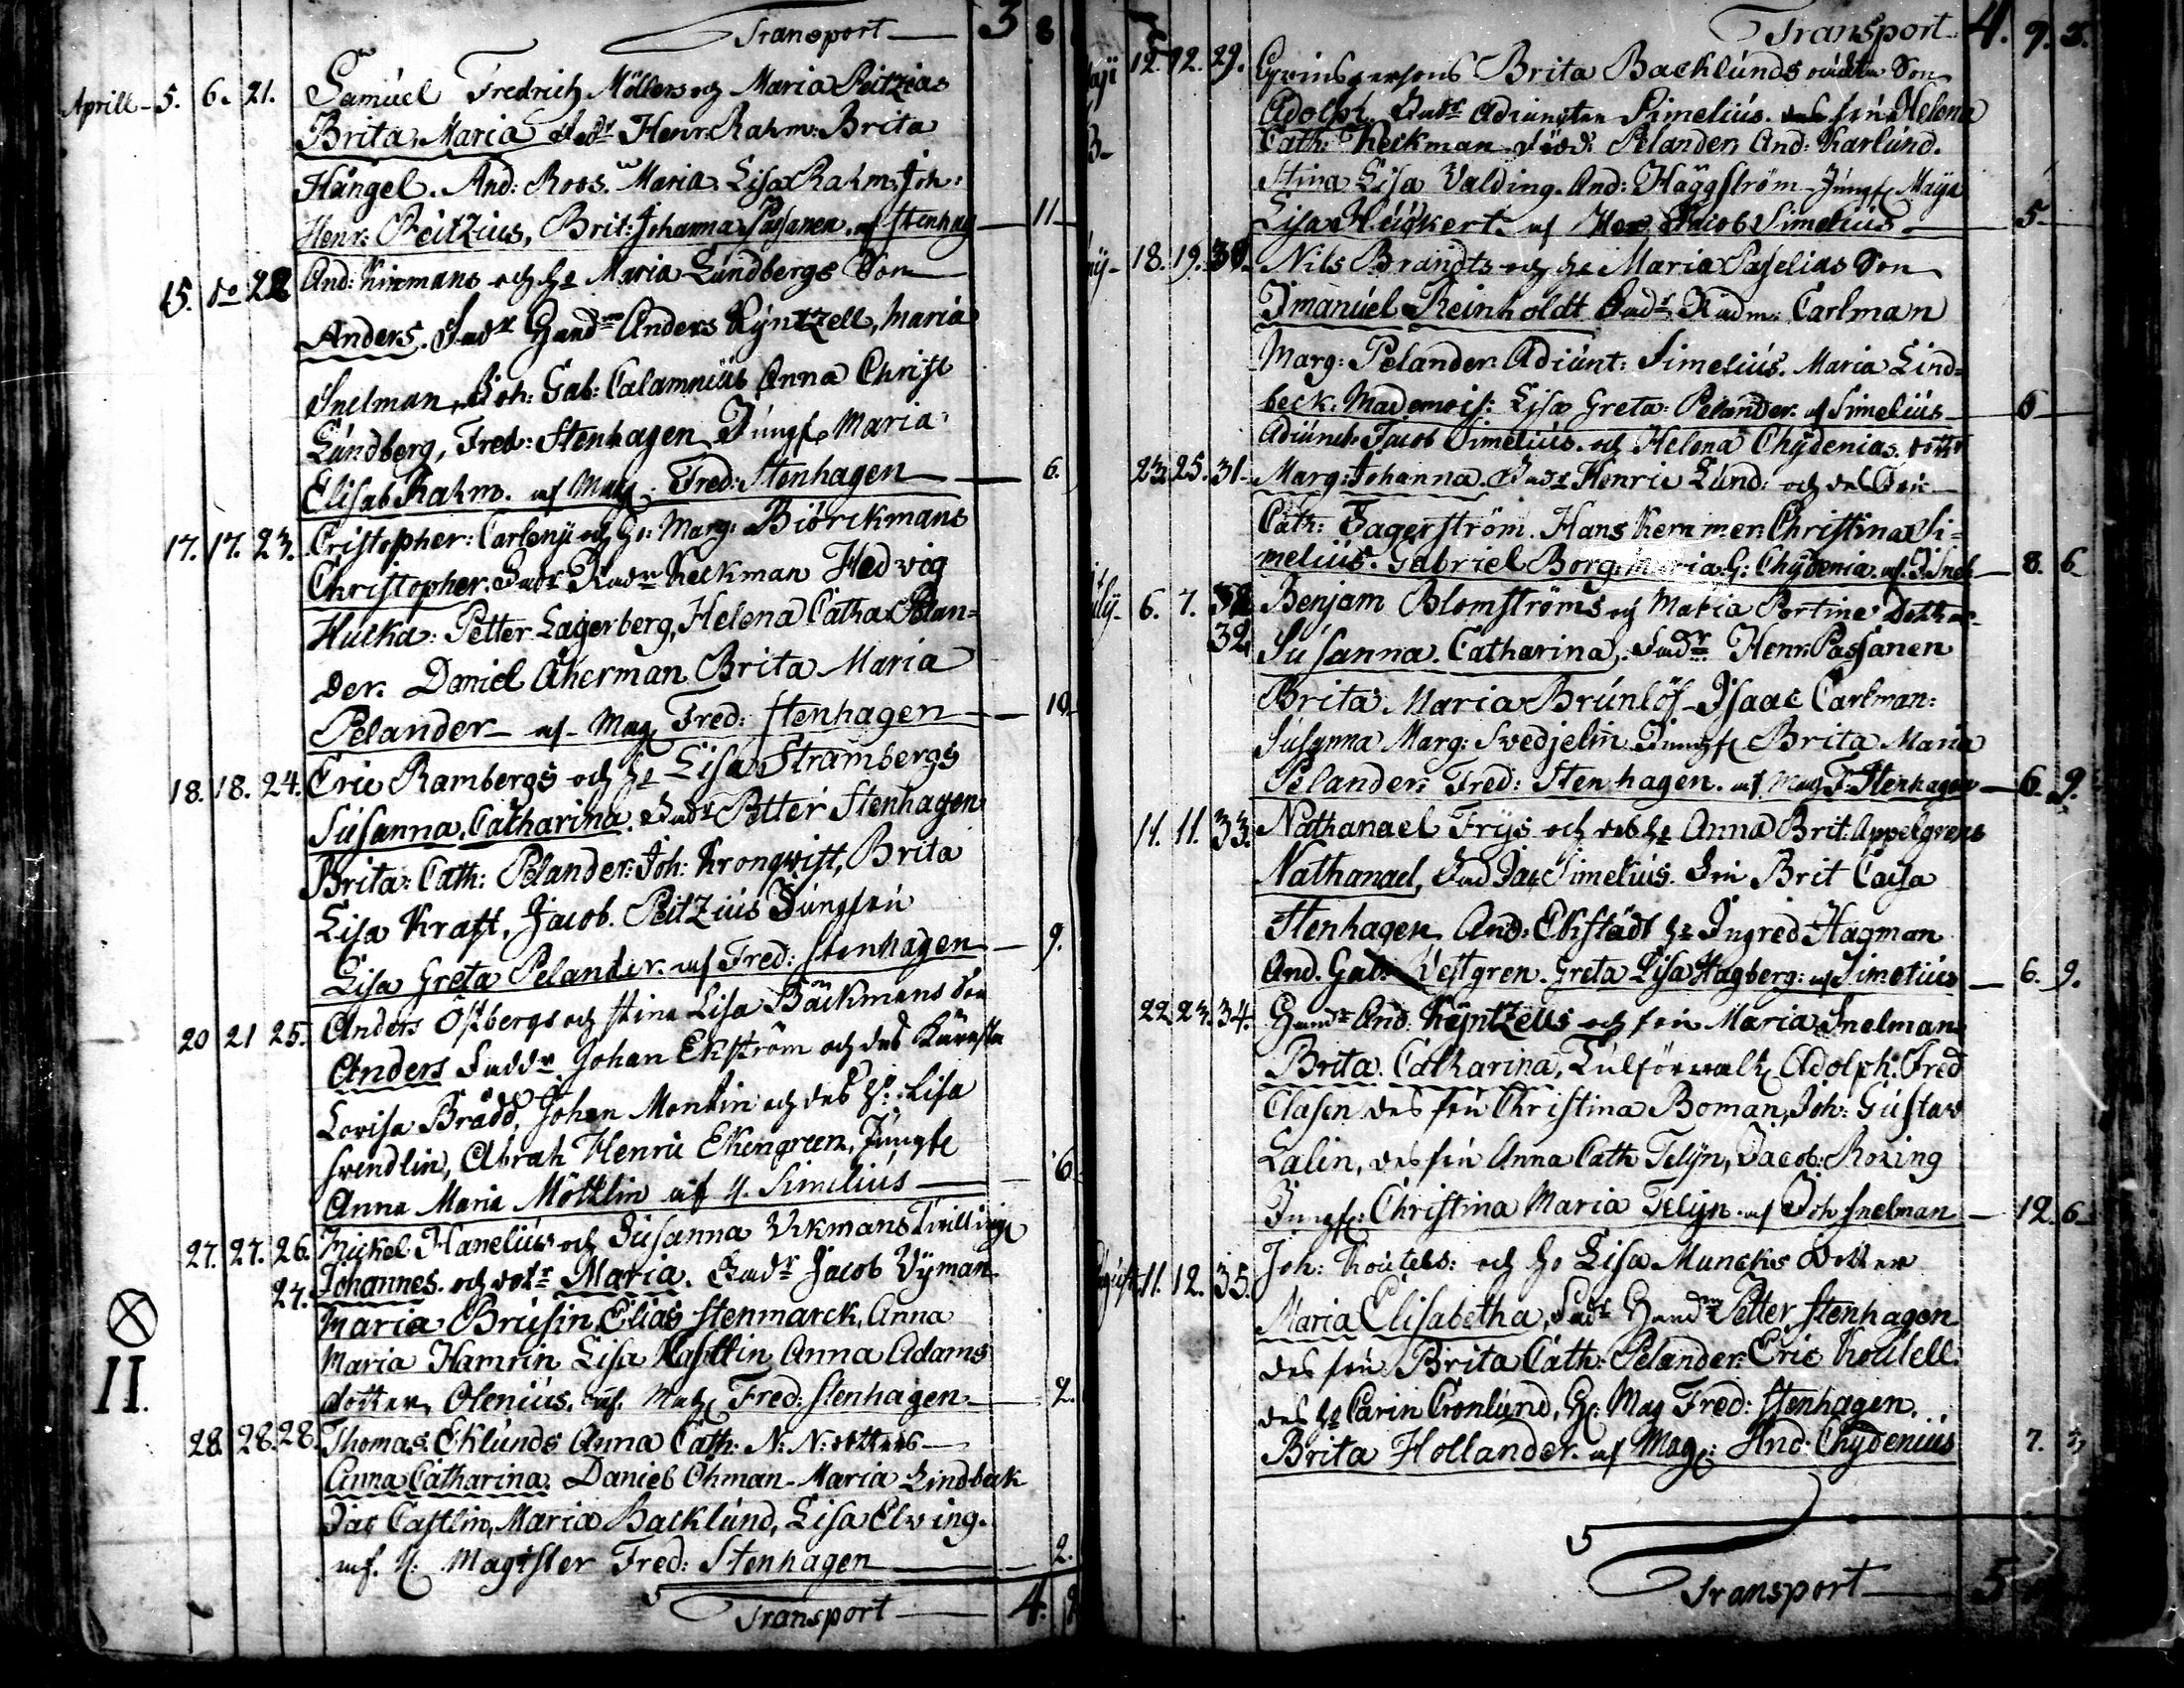 Transport 3 8
Aprill 5. 6. 21. Samuel Fredrich Möllers och Maria Peitzias
Brita Maria Fadr Henr: Rahm: Brita
Hängel. And: Roos. Maria Lisa Rahm: Joh:
Henr: Peitzius, Brit: Johanna Passanen. af Stenhag 11
15. do 22 And: Kinmans och ho Maria Lundbergs Son
Anders. Fadr Handm Anders Kyntzell, Maria
Snelman, Joh: Gab: Calamnius Anna Christ
Lundberg, Fred: Stenhagen Jungf Maria
Elisab Rahm. af Mag. Fred: Stenhagen 6.
17. 17. 23. Cristopher: Carleny och ho: Marg: Biörckmans
Christopher. Fadr Rådm Keckman Hedvig
Hulka: Petter Lagerberg, Helena Catha Pelan=
der. Daniel Åkerman Brita Maria
Pelander af Mag Fred: Stenhagen 10
18. 18. 24. Eric Rambergs och ho Lisa Strambergs
Susanna Catharina. Fadr Petter Stenhagen
Brita: Cath: Pelander: Joh: Krongwist, Brita
Lisa Kraft, Jacob. Peitzius Jungfru
Lisa Greta Pelander. af Fred: Stenhagen 9.
20 21 25. Anders Östbergs och Stina Lisa Bäckmans Son
Anders Faddr Johan Ekström och des Käresta
Lovisa Brådd, Johan Montin och des ho: Lisa
Svendlin, Abrah Henric Ekengreen, Jungfr
Anna Maria Möllin af H. Simelius 6
27. 27. 26. Mickel Hanelius och Susanna Vekmans Tvillingr
27. Johannes. och dotr Maria. Fadr Jacob Vyman
Maria Brusin, Elias Stenmarck, Anna
Maria Hamrin Lisa Kastlin, Anna Adams
dotter, Olenius, af Mag Fred: Stenhagen 2.
28. 28. 28. Thomas Eklunds Anna Cath: N: N: dotters
Anna Catharina. Daniel Öhman Maria Lindbeck
Jac Castlin, Maria Backlund, Lisa Elving.
af. H. Magister Fred: Stenhagen 2.
Transport 4.
II.
Transport 4. 9. 3.
12. 12. 29. Qvinspersons Brita Backlunds oächta Son
Adolph. Fadr Adiuncten Simelius. des fru Helena
Cath: Keckman född: Pelander: And: Karlund.
Stina Lisa Valding. And: Häggström Jungf Maya
Lisa Heickert. af Her Jacob Simelius 5
18. 19. 30. Nils Brandts och ho Maria Paselias Son
Imanuel Reinholdt Fadr Rådm: Carlman
Marg: Pelander Adiunt: Simelius. Maria Lind=
beck: Mademois: Lisa Greta: Pelander. af Simelius 6
Adiunct. Jacob Simelius. och Helena Chydenias. dottr
23. 25. 31. Marg: Johanna. Fadr Henric Lund: och
Cath: Fagerström. Hans Kemmer: Christina Si=
melius. Gabriel Borg. Maria G: Chydenia. af. J. Snel 8. 6
July 6. 7. 32 Benjam Blomströms och Maria Portins Dotter
32 Susanna Catharina, Fadr Henr: Passanen
Brita Maria Brunlöf Isaac Carlman:
Susanna Marg: Svedjelin Jungf Brita Maria
Pelander: Fred: Stenhagen. af Mag F. Stenhagen 6. 9.
11. 11. 33. Nathanael Frijs och des ho Anna Brit: Appelgrens
Nathanael, Fad Jac Simelius. Fru Brit Cajsa
Stenhagen, And: Ekstädt ho Ingred Hagman
And. Gab: Vestgren. Greta Lisa Hagberg: af Simelius 6. 9.
22 23. 34. Handm And: Kyntzells och fru Maria Snelmans
Brita Catharina, Tulförvalt Adolph: Fred
Clasen des fru Christina Boman, Joh: Gustav
Lalin, des fru Anna Cath Telyn, Jacob: Roring
Jungf: Christina Maria Telyn. af Joh Snelman 12. 6
11. 12. 35. Joh: Koutels: och ho Lisa Muncks Dotter
Maria Elisabetha, Fadr Handm Petter Stenhagen
des fru Brita Cath: Pelander: Eric Koutell.
des ho Carin Cronlund, H: Mag Fred: Stenhagen.
Brita Hollander. af Mag: And: Chydenius 7. 3
Transport 5